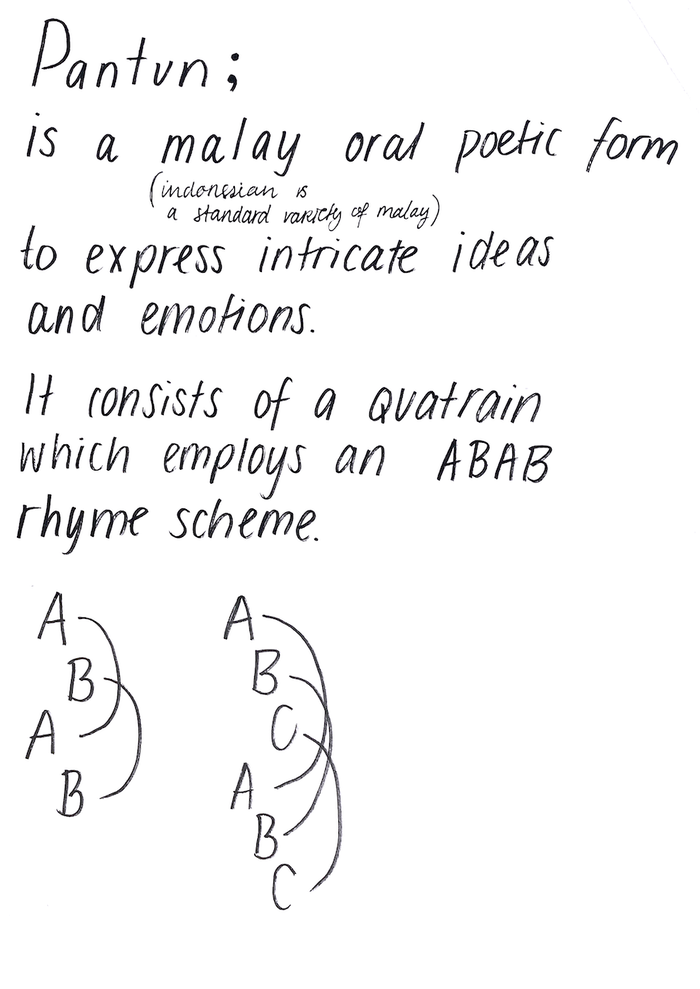 Pantun;
is a malay oral poetic form
(indonesian is
a standard variety of malay)
to express intricate ideas
and emotions.
It consists of a quatrain
which employs an ABAB
rhyme scheme.
A
B
A
B
A
B
C
A
B
C